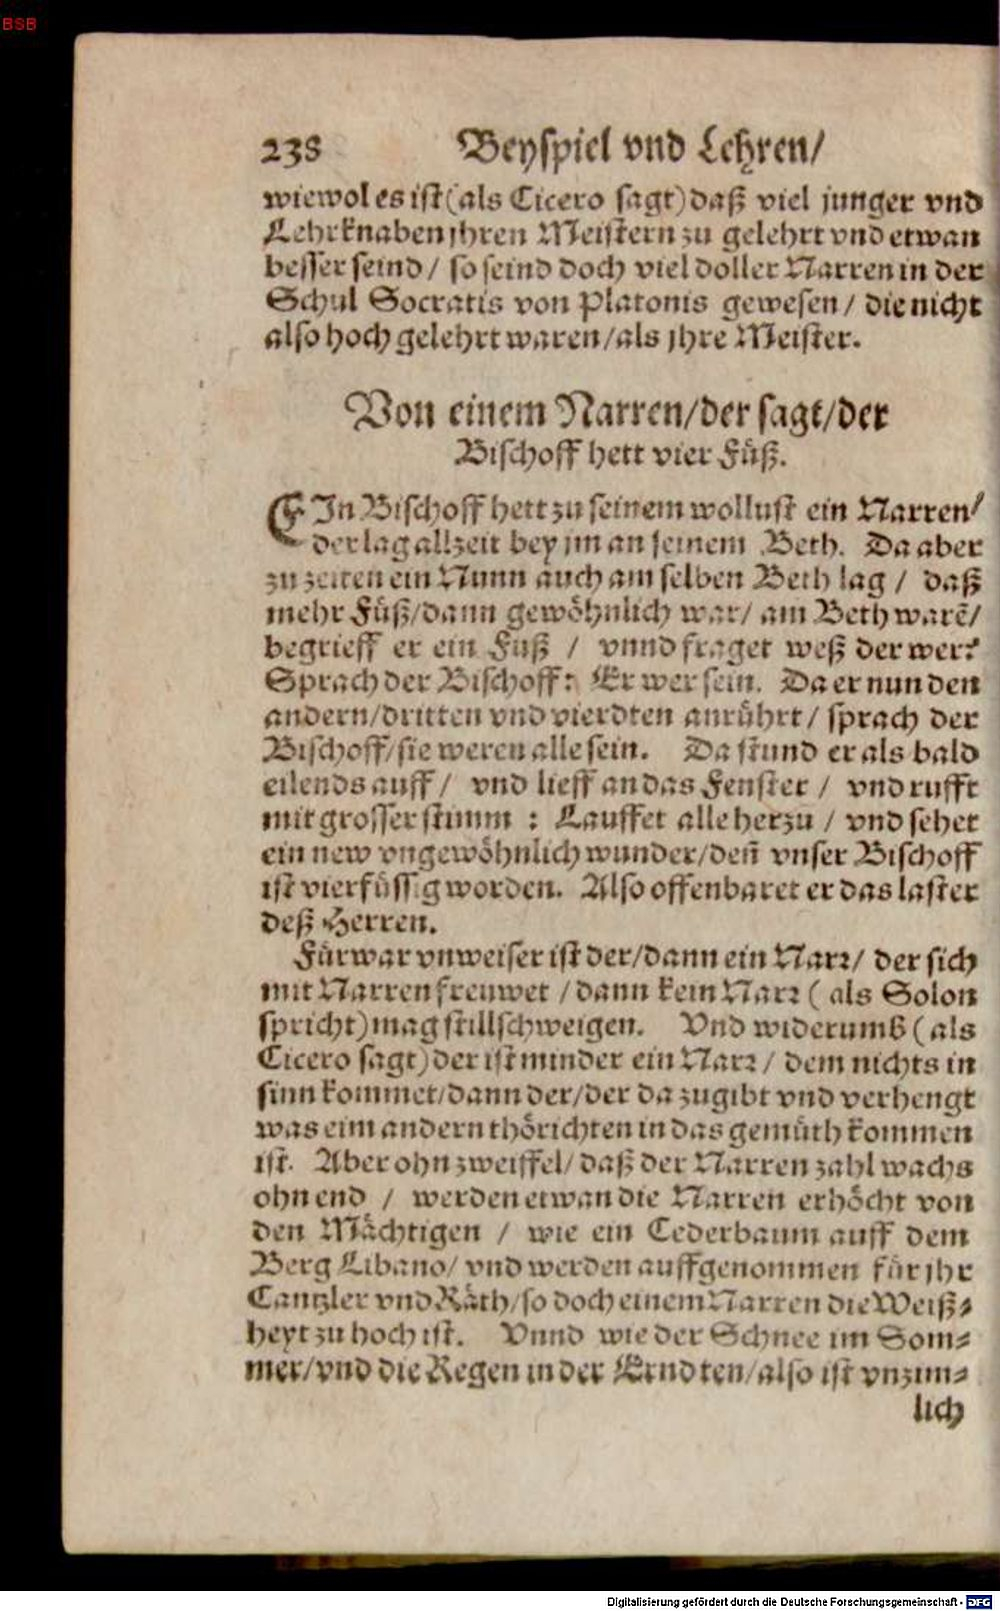 BSB
238 Beyspiel vnd Lehren/
wiewol es ist (als Cicero sagt) daß viel junger vnd
Lehrknaben jhren Meistern zu gelehrt vnd etwan
besser seind / so seind doch viel doller Narren in der
Schul Socratis von Platonis gewesen / die nicht
also hoch gelehrt waren / als jhre Meister.
Von einem Narren/der sagt/der
Bischoff hett vier Füß.
EIn Bischoff hett zu seinem wollust ein Narren/
der lag allzeit bey jm an seinem Beth. Da aber
zu zeiten ein Nunn auch am selben Beth lag / daß
mehr Füß/dann gewöhnlich war/ am Beth warẽ/
begrieff er ein Fuß / vnnd fraget weß der wer?
Sprach der Bischoff: Er wer sein. Da er nun den
andern/dritten vnd vierdten anrührt/ sprach der
Bischoff/sie weren alle sein. Da stund er als bald
eilends auff / vnd lieff an das Fenster / vnd rufft
mit grosser stimm : Lauffet alle herzu / vnd sehet
ein new vngewöhnlich wunder/deñ vnser Bischoff
ist vierfüssig worden. Also offenbaret er das laster
deß Herren.
Fürwar vnweiser ist der/dann ein Narr/ der sich
mit Narren frewet /dann kein Narr ( als Solon
spricht) mag stillschweigen. Vnd widerumb (als
Cicero sagt) der ist minder ein Narr / dem nichts in
sinn kommet/dann der/der da zugibt vnd verhengt
was eim andern thörichten in das gemüth kommen
ist. Aber ohn zweiffel/ daß der Narren zahl wachs
ohn end / werden etwan die Narren erhöcht von
den Mächtigen / wie ein Cederbaum auff dem
Berg Libano/ vnd werden auffgenommen für jhr
Cantzler vnd Räth/so doch einem Narren die Weiß⸗
heyt zu hoch ist. Vnnd wie der Schnee im Som⸗
mer/vnd die Regen in der Erndten/also ist vnzim⸗
lich
Digitalisierung gefördert durch die Deutsche Forschungsgemeinschaft - DFG